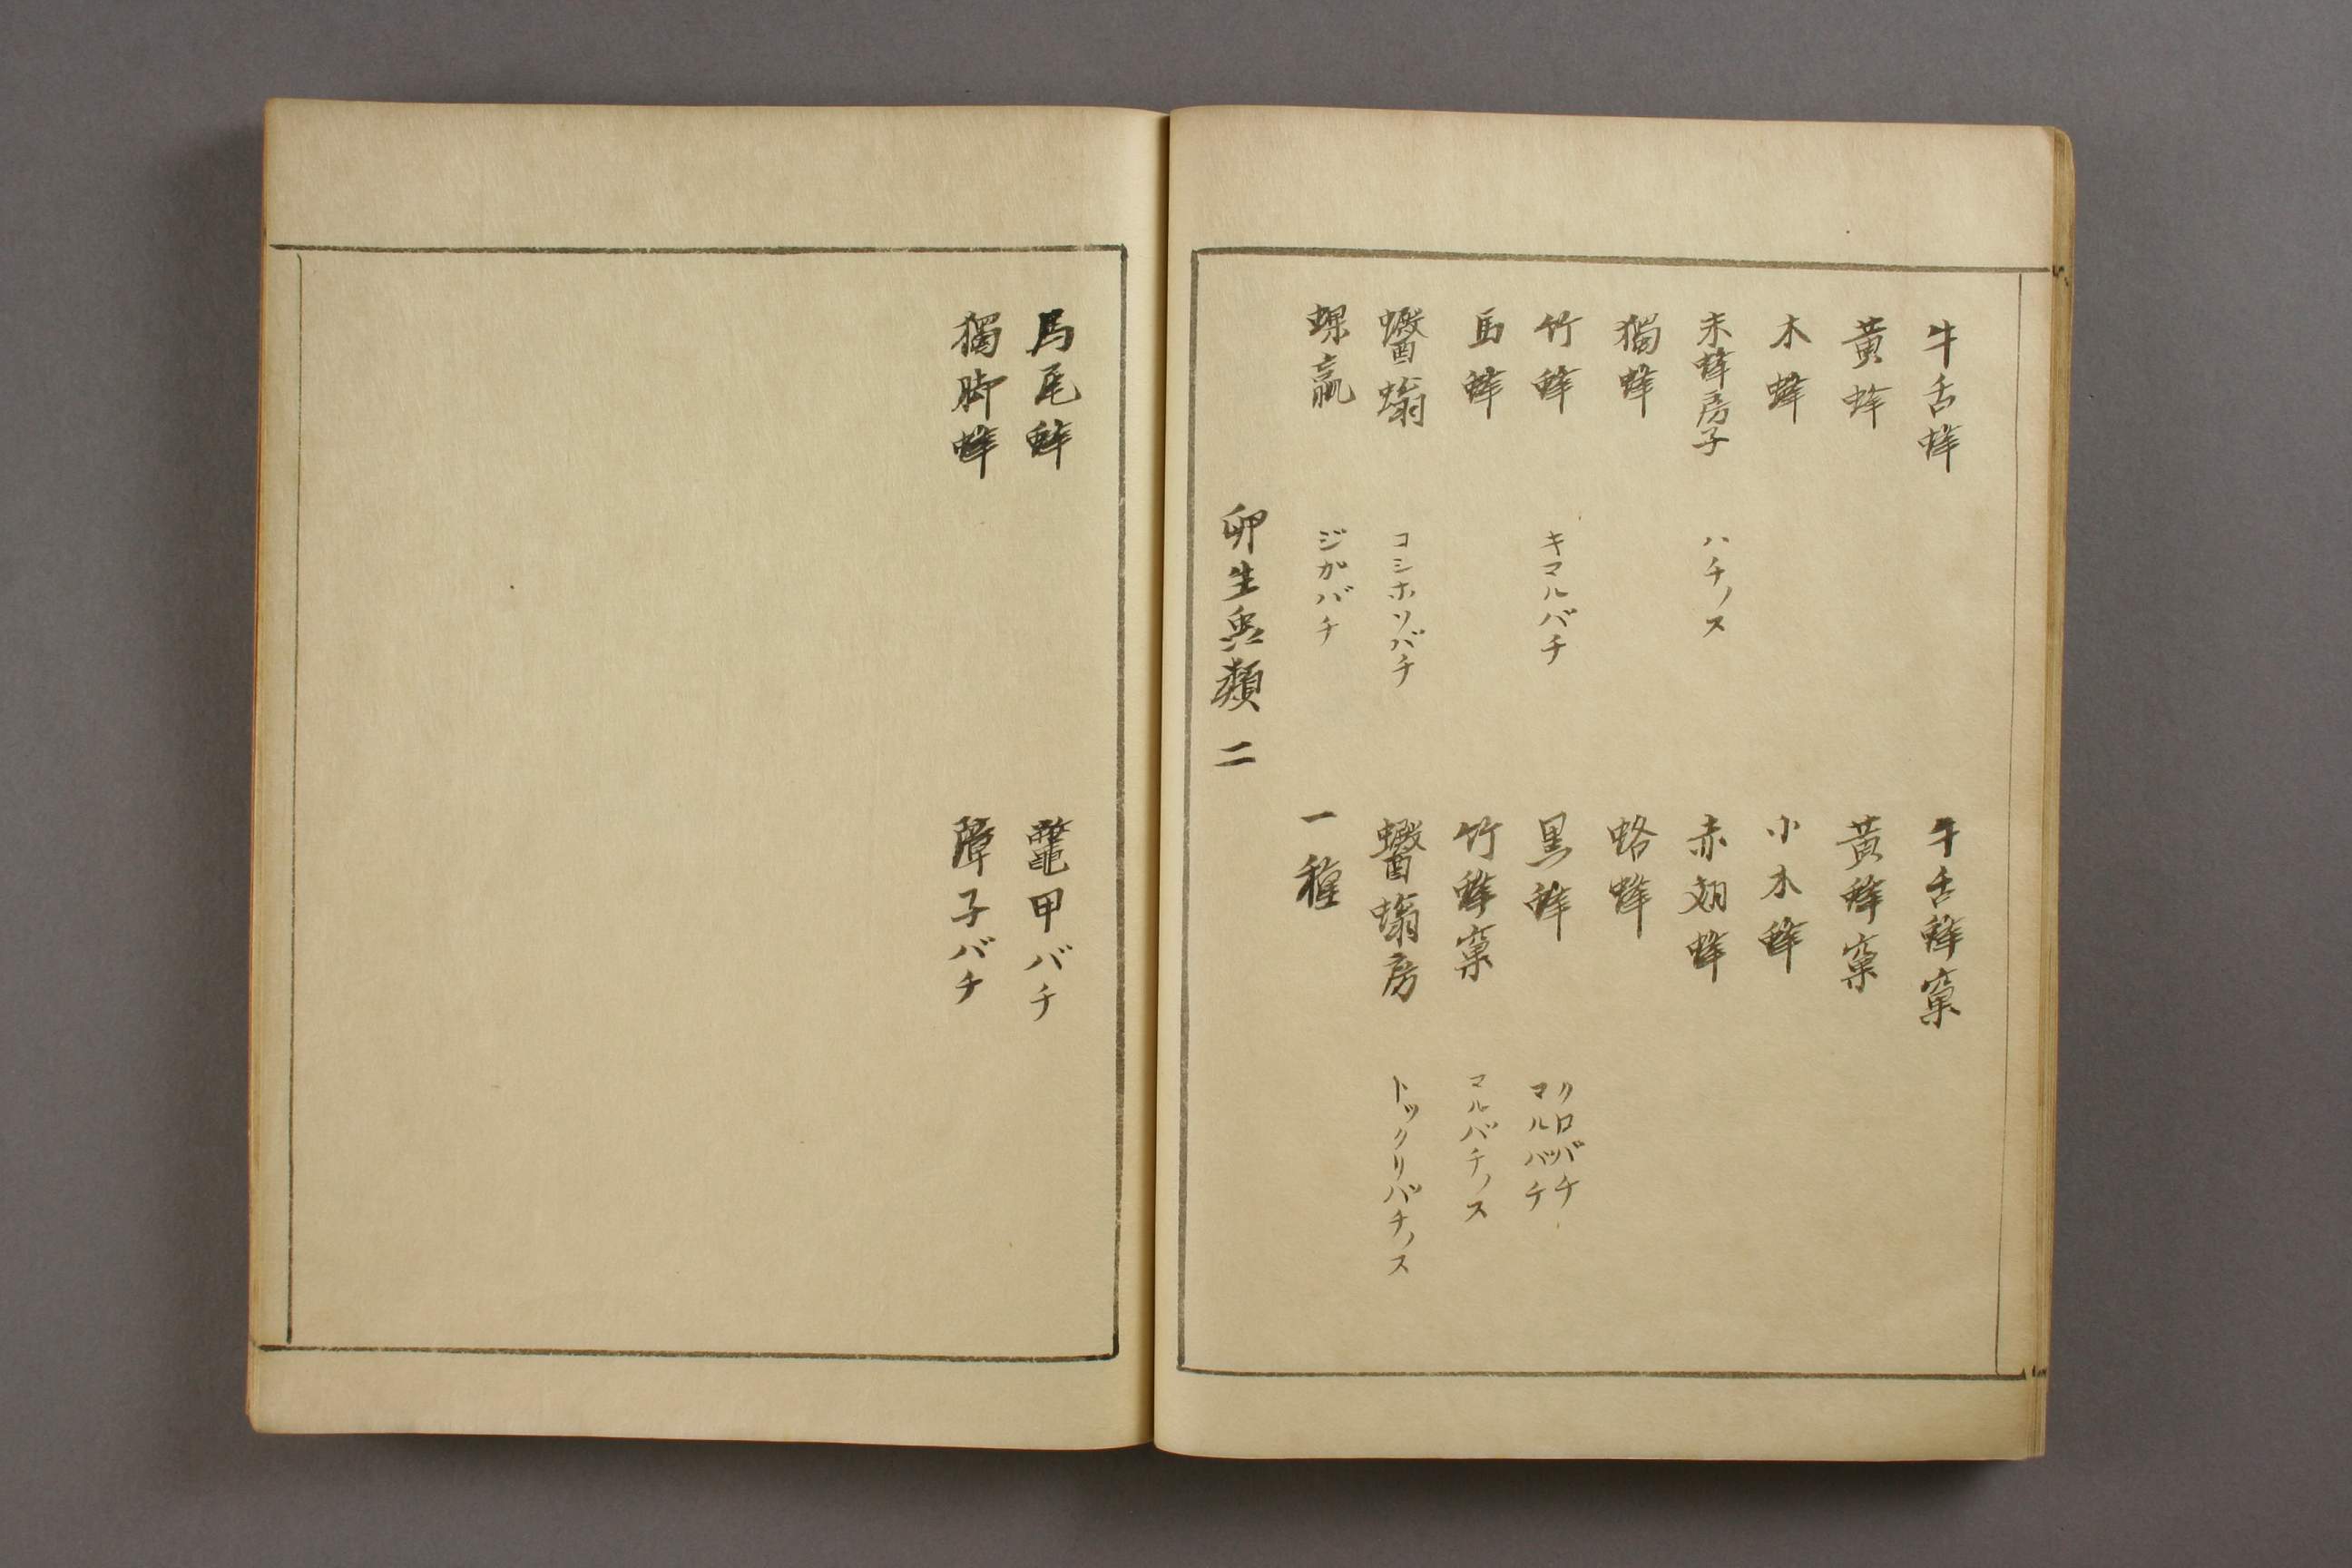 牛舌蜂
牛舌蜂窠
黃蜂
黃蜂窠
木蜂
小木蜂
未蜂房子 ハチノス
赤翅蜂
獨蜂
蛒蜂
竹蜂 キマルバチ
黒蜂 クロバチ
マルバチ
馬蜂
竹蜂窠 マルバチノス
蠮螉 コシホソバチ
蠮螉房 トックリバチノス
蜾蠃 ジガバチ
一種
卵生虫類 二
馬尾蜂
鼈甲バチ
獨脚蜂
障子バチ